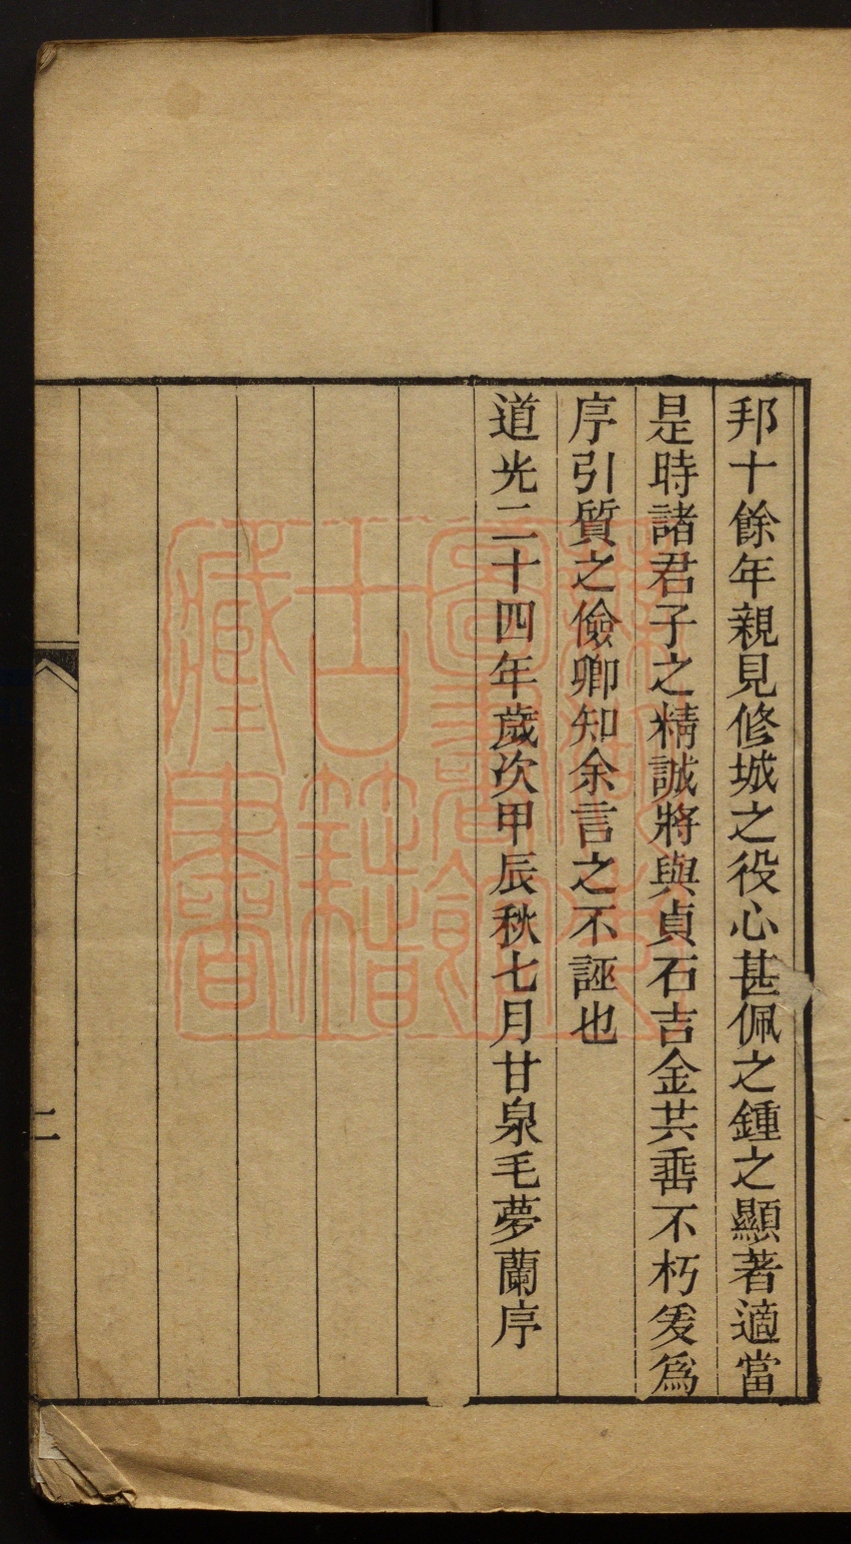 邦十餘年親見修城之役心甚佩之鍾之顯著適當
是時諸君子之精誠將與貞石吉金共垂不朽爰爲
序引質之儉卿知余言之不誣也
道光二十四年歲次甲辰秋七月甘泉毛夢蘭序
二